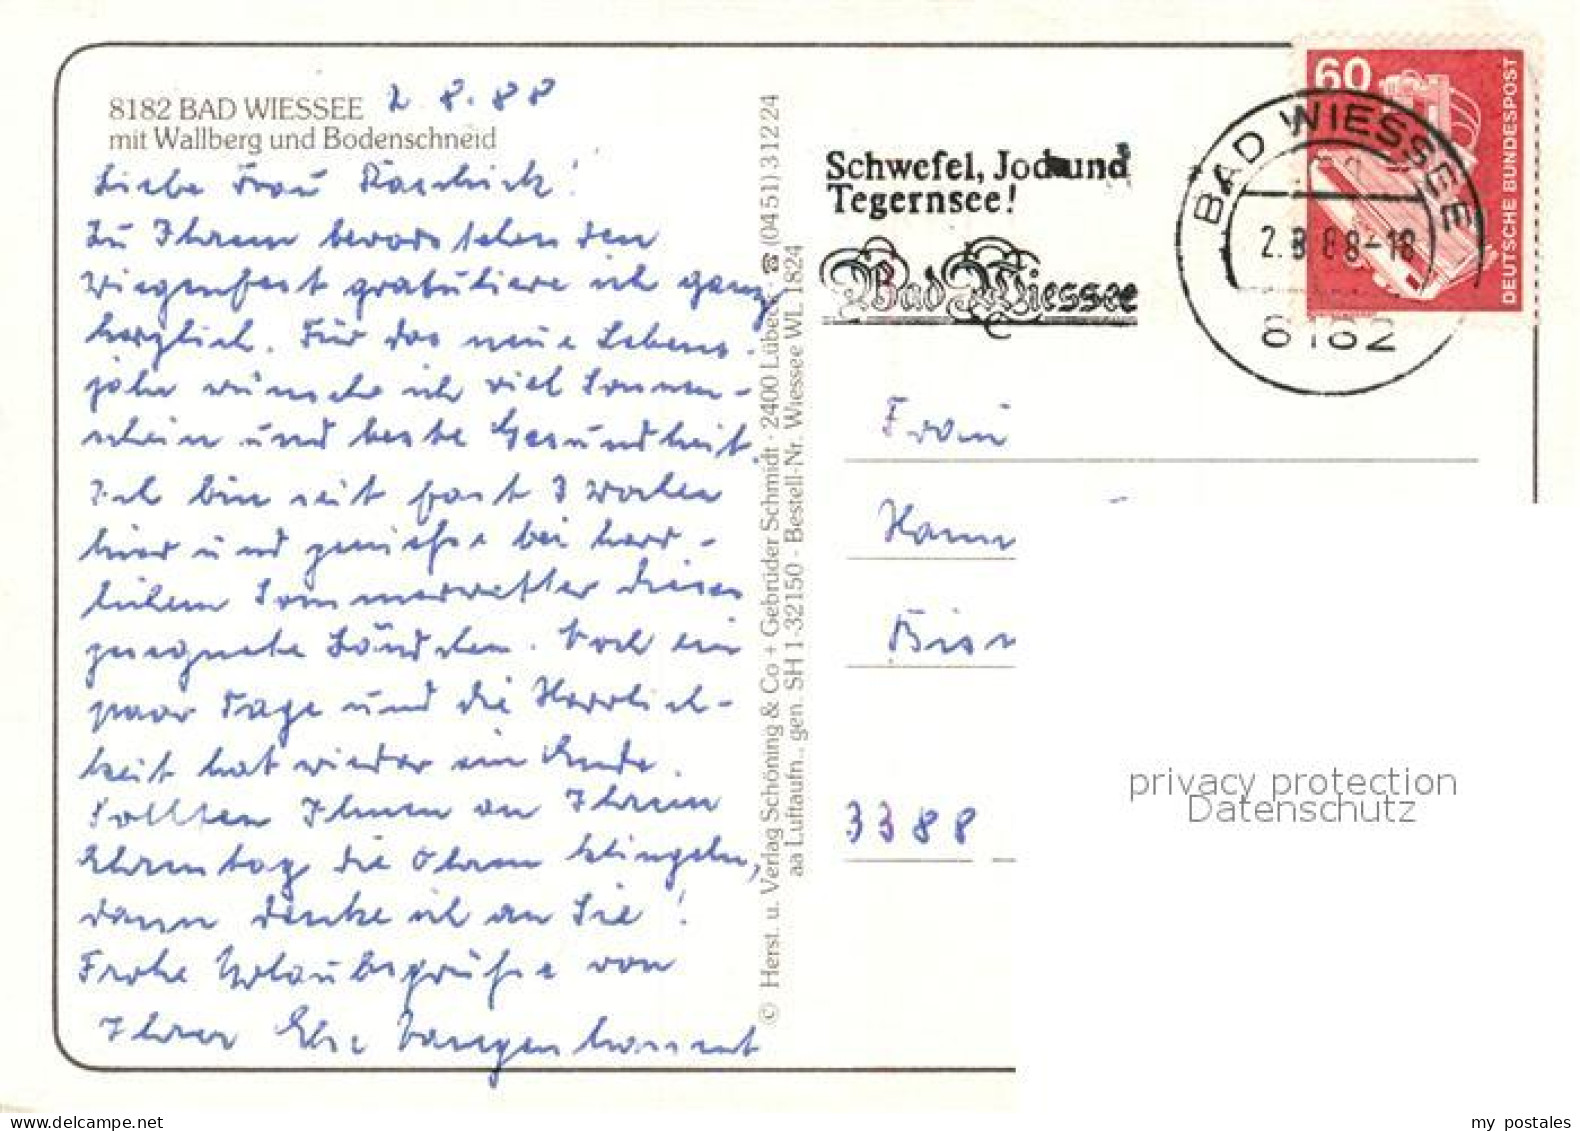 8182 BAD WIESSEE 2 8. 88
mit Wallberg und Bodenschneid
Liebe Frau
Zu Ihrem bevorstehenden
Wiegenfest gratuliere ich ganz
herzlich. Für das neue Lebens-
jahr wünsche ich viel Sonnen-
schein und beste Gesundheit.
Ich bin seit fast 3 Wochen
hier und genieße bei herr-
lichem Sommerwetter dieses
gesegnete Ländchen. Noch ein
paar Tage und die Herrlich-
keit hat wieder ein Ende.
Sollten Ihnen an Ihrem
Ehrentag die Ohren klingeln,
dann denke ich an Sie!
Frohe Urlaubsgrüße von
Ihrer Else
© Herst. u. Verlag Schöning & Co + Gebrüder Schmidt · 2400 Lübeck ☎ (04 51) 3 12 24
aa Luftaufn., gen. SH 1-32150 - Bestell-Nr. Wiessee WL 1824
Schwefel, Jod und
Tegernsee!
Bad Wiessee
BAD WIESSEE
2.8.88-18
8182
60
DEUTSCHE BUNDESPOST
Frau
Hann
Bis
3388
privacy protection
Datenschutz
my postales